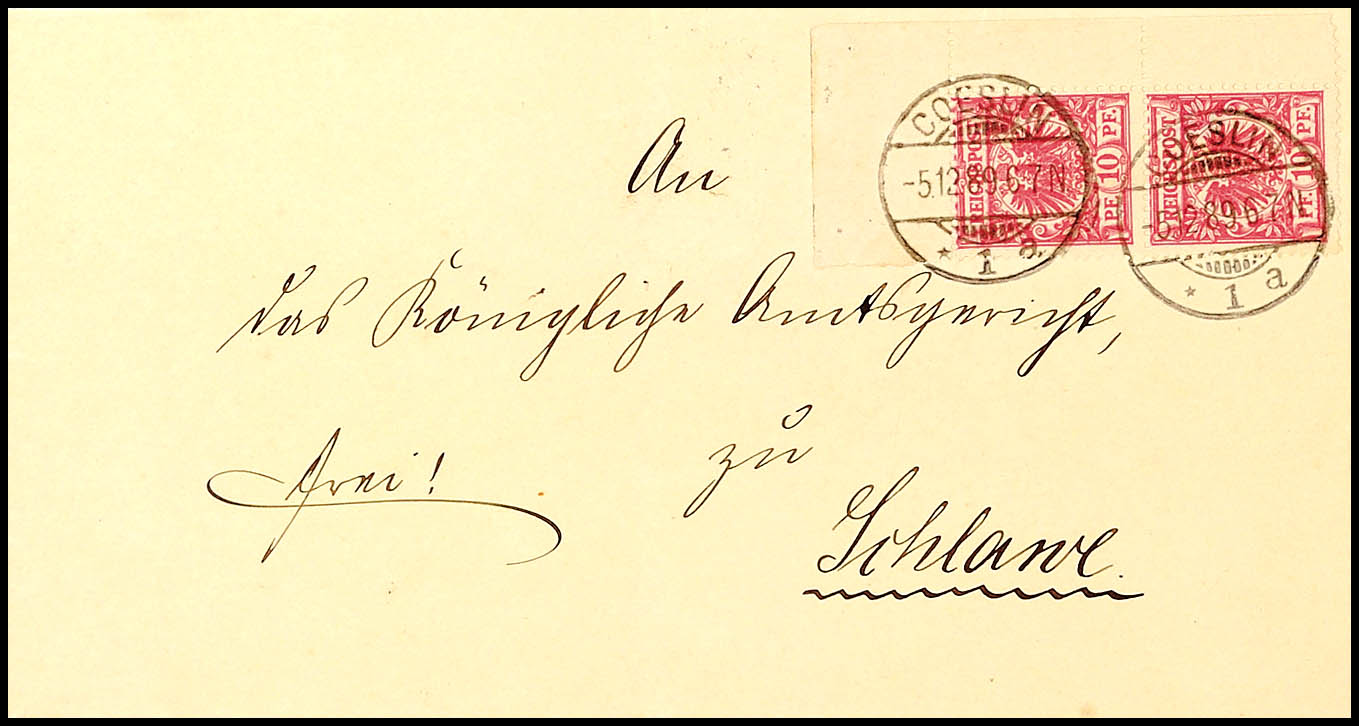 COESLIN
-5.12.89.6-7N
* 1 a.
REICHSPOST
PF. 10 PF.
COESLIN
-5.12.89.6-7N
* 1 a
REICHSPOST
PF. 10 PF.
An
das Königliche Amtsgericht,
zu
frei!
Schlawe.